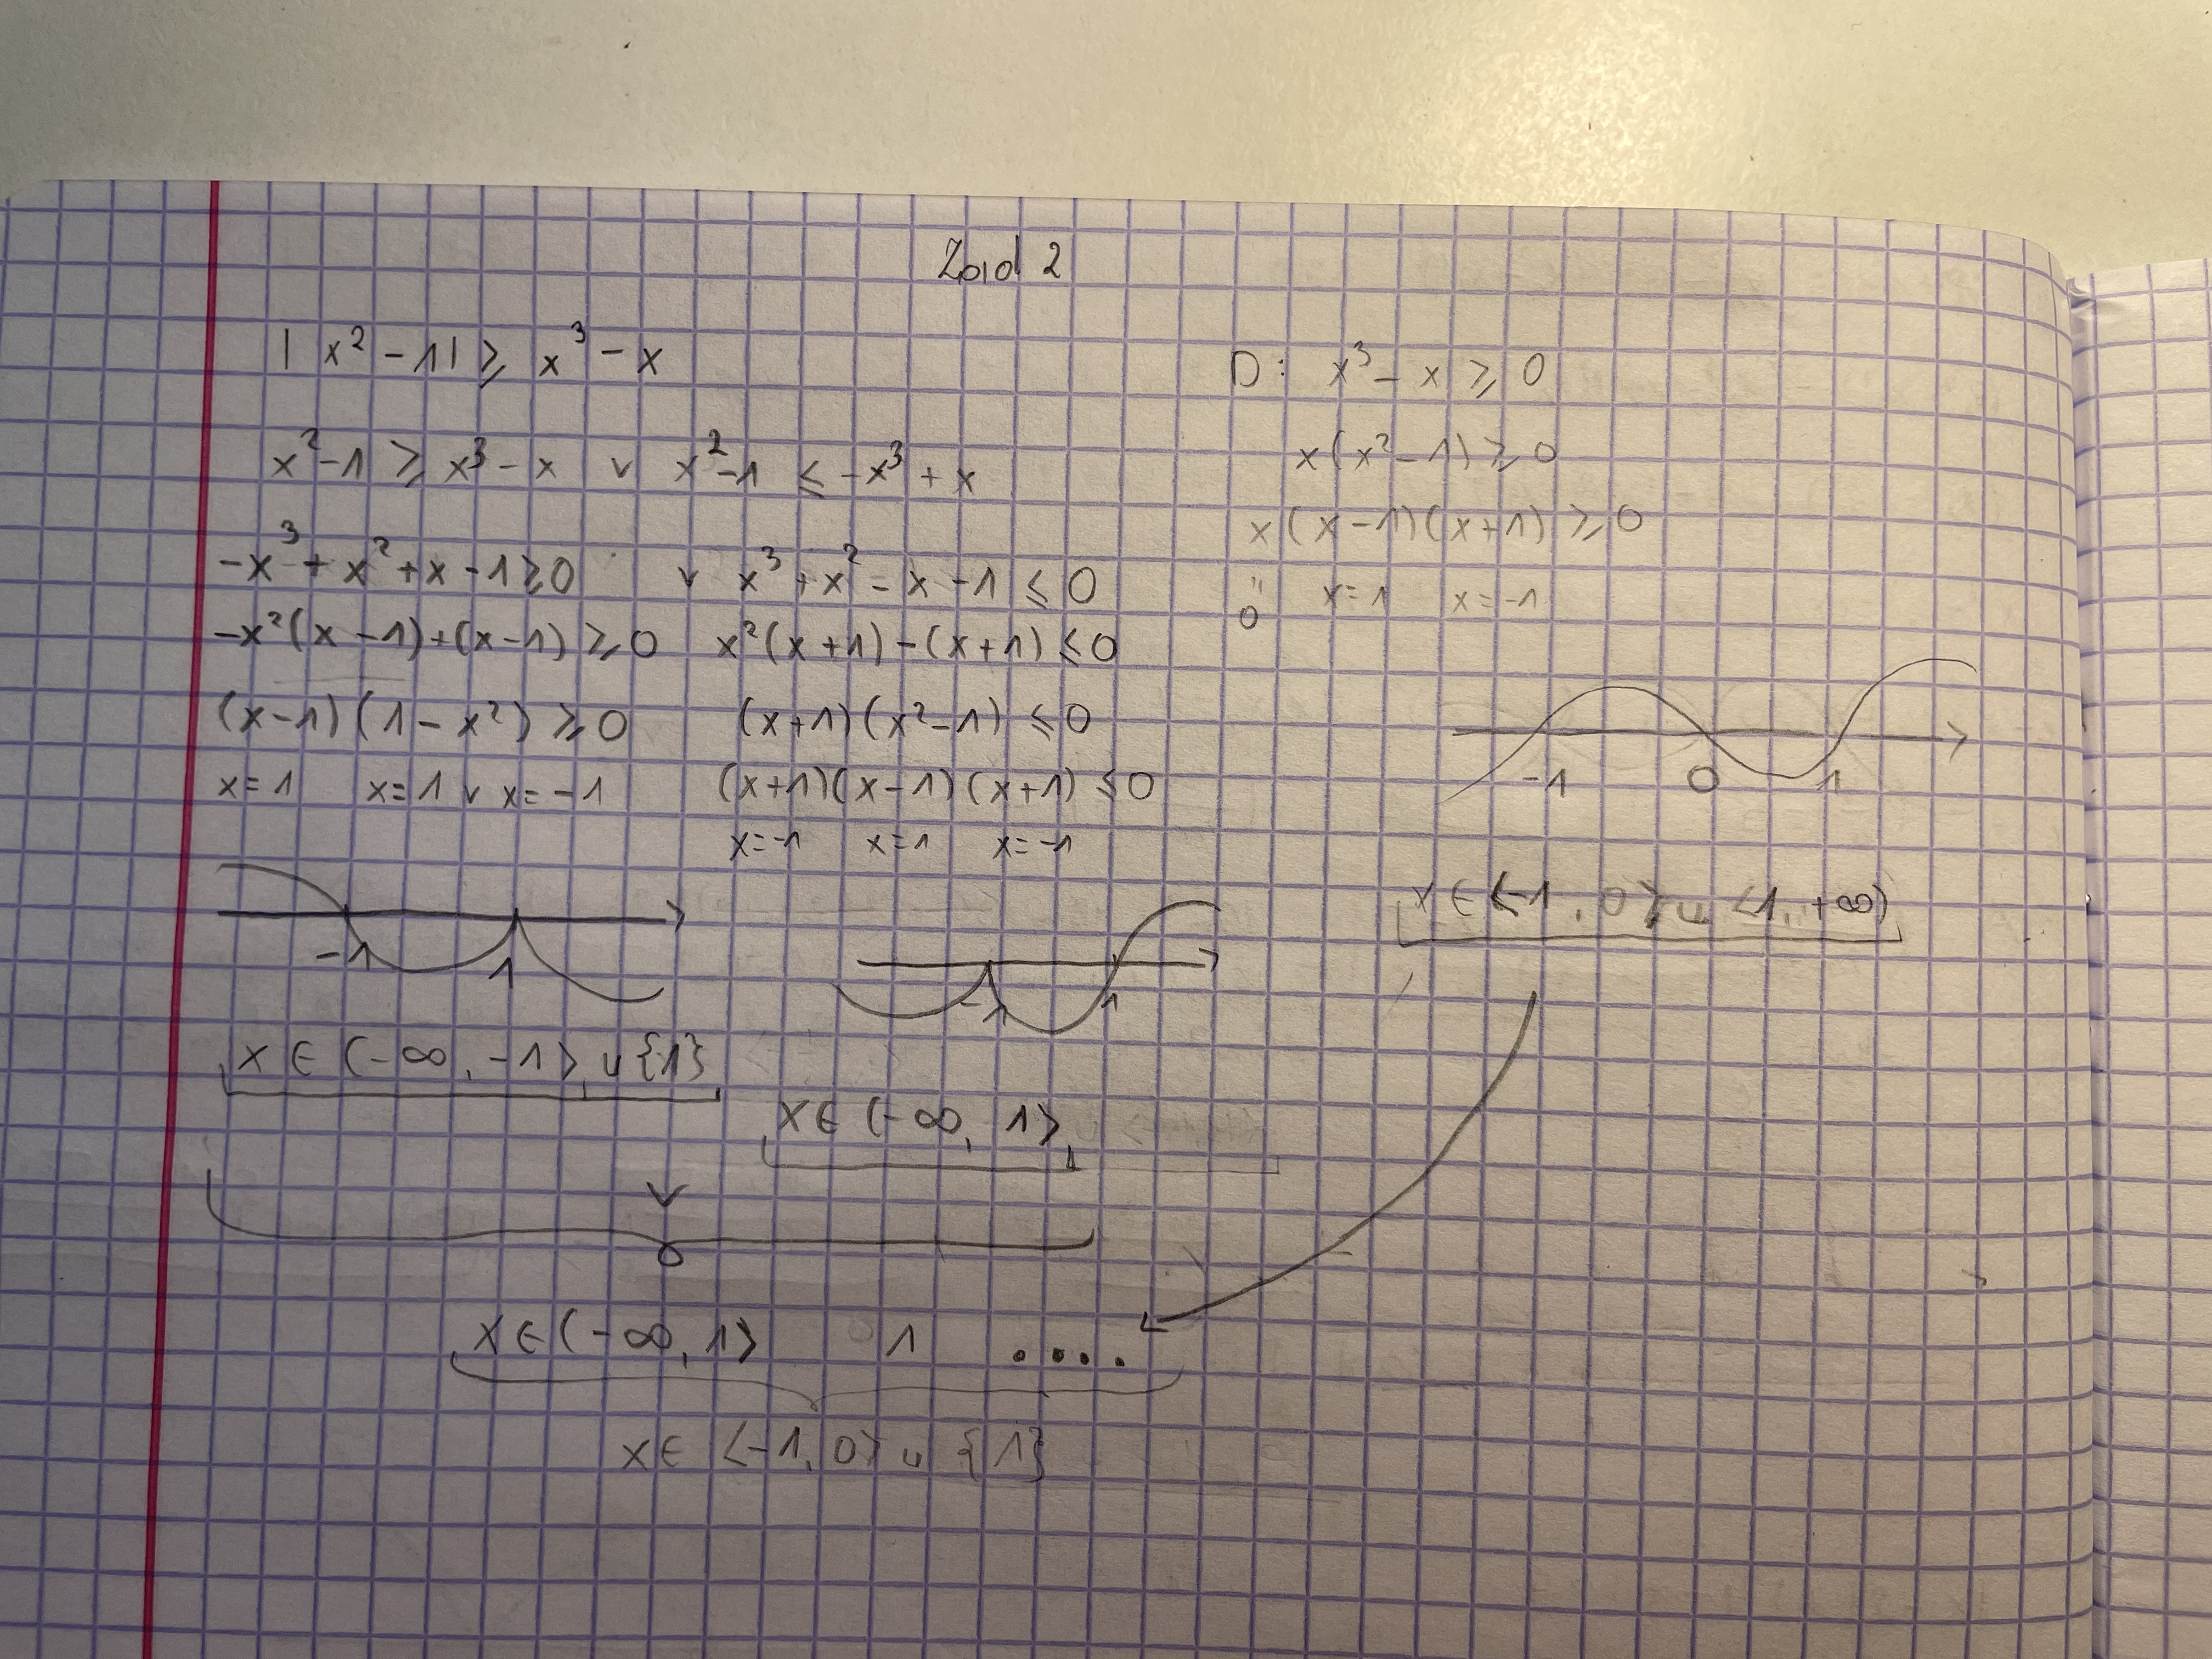 Zad 2
|x² - 1| ⩾ x³ - x
x² - 1 ⩾ x³ - x ∨ x² - 1 ≤ -x³ + x
-x³ + x² + x - 1 ⩾ 0 ∨ x³ + x² - x - 1 ≤ 0
-x²(x - 1) + (x - 1) ⩾ 0 x²(x + 1) - (x + 1) ≤ 0
(x - 1)(1 - x²) ⩾ 0 (x + 1)(x² - 1) ≤ 0
x = 1 x = 1 ∨ x = -1 (x + 1)(x - 1)(x + 1) ≤ 0
x = -1 x = 1 x = -1
-1 1
-1 1
x ∈ (-∞, -1> ∪ {1}
x ∈ (-∞, 1>
∨
x ∈ (-∞, 1> 1 ....
x ∈ <-1, 0> ∪ {1}
D: x³ - x ⩾ 0
x(x² - 1) ⩾ 0
x(x - 1)(x + 1) ⩾ 0
" x = 1 x = -1
0
-1 0 1
x ∈ <-1, 0> ∪ <1, +∞)